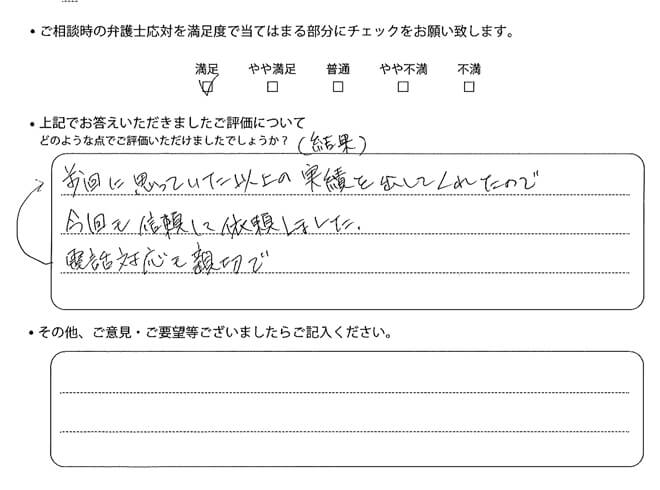 ・ご相談時の弁護士応対を満足度で当てはまる部分にチェックをお願い致します。
満足 やや満足 普通 やや不満 不満
・上記でお答えいただきましたご評価について
どのような点でご評価いただけましたでしょうか？ (結果)
前回に思っていた以上の実績を出してくれたので
今回も信頼して依頼しました.
電話対応も親切で
・その他、ご意見・ご要望等ございましたらご記入ください。